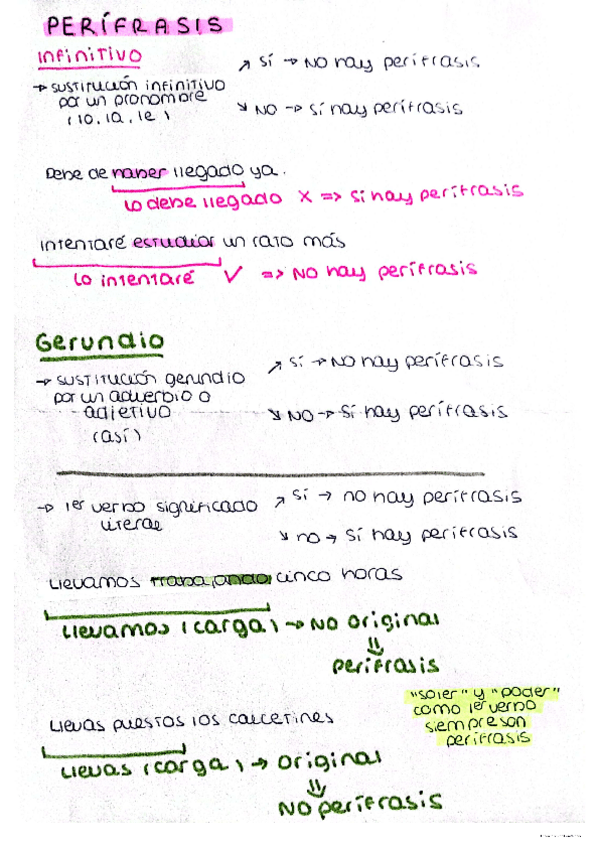 PERÍFRASIS
Infinitivo
→ sustitución infinitivo
por un pronombre
(lo, la, le)
↗ sí → NO hay perífrasis
↘ NO → sí hay perífrasis
Debe de haber llegado ya.
Lo debe llegado X => sí hay perífrasis
Intentaré estudiar un rato más
Lo intentaré ✓ => NO hay perífrasis
Gerundio
→ sustitución gerundio
por un adverbio o
adjetivo
(así)
↗ sí → NO hay perífrasis
↘ NO → sí hay perífrasis
→ 1er verbo significado
literal
↗ sí → no hay perífrasis
↘ no → sí hay perífrasis
Llevamos trabajando cinco horas
Llevamos (carga) → NO original
⇓
perífrasis
"soler" y "poder"
como 1er verbo
siempre son
perífrasis
Llevas puestos los calcetines
Llevas (carga) → original
⇓
NO perífrasis